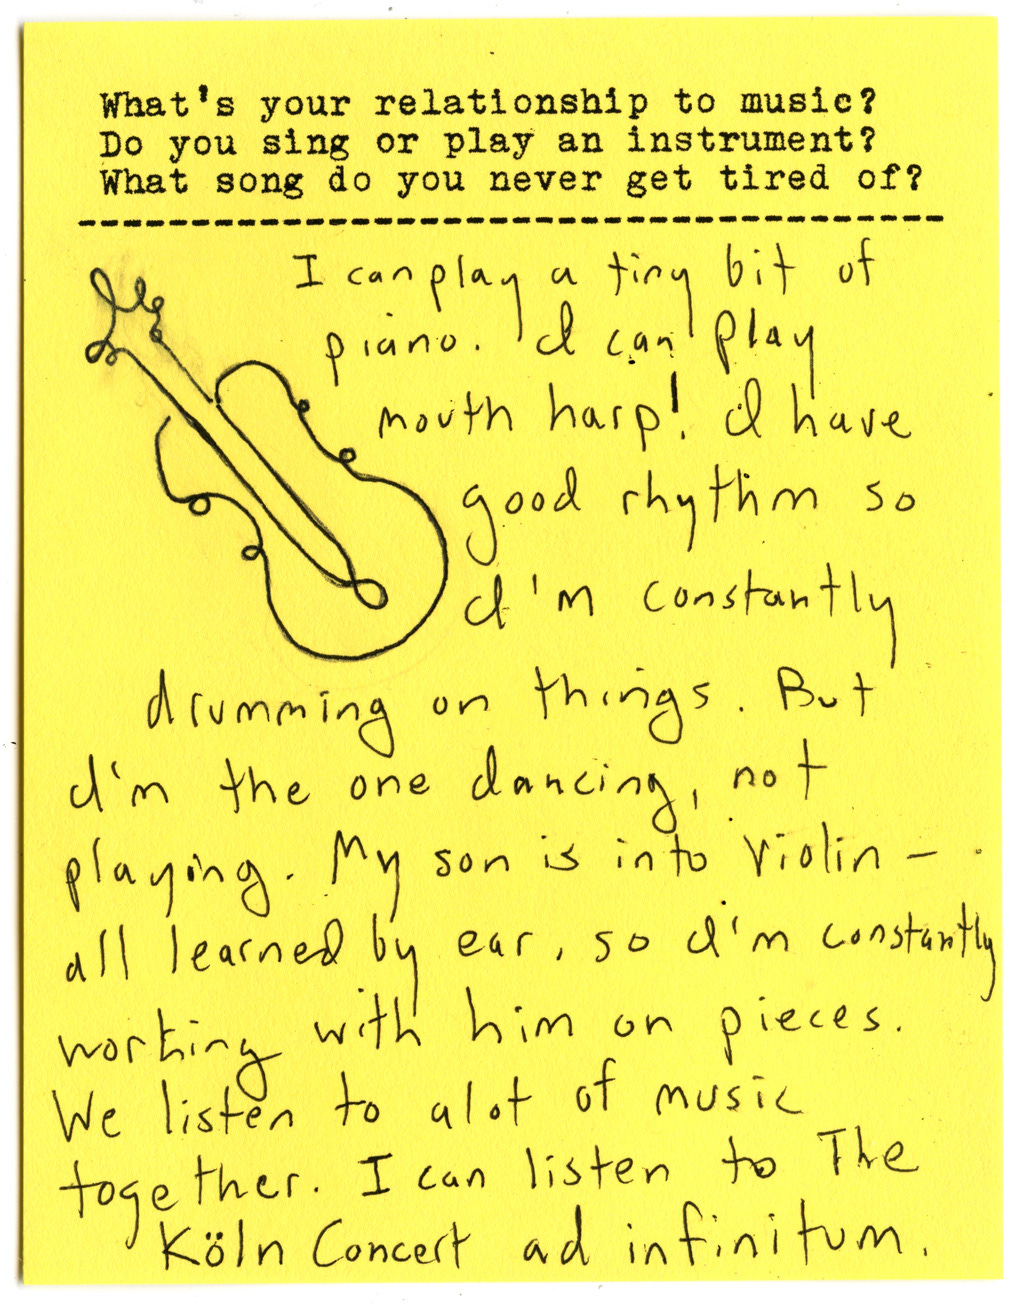 What's your relationship to music?
Do you sing or play an instrument?
What song do you never get tired of?
I can play a tiny bit of
piano. I can play
mouth harp! I have
good rhythm so
I'm constantly
drumming on things. But
I'm the one dancing, not
playing. My son is into violin –
all learned by ear, so I'm constantly
working with him on pieces.
We listen to alot of music
together. I can listen to The
Köln Concert ad infinitum.